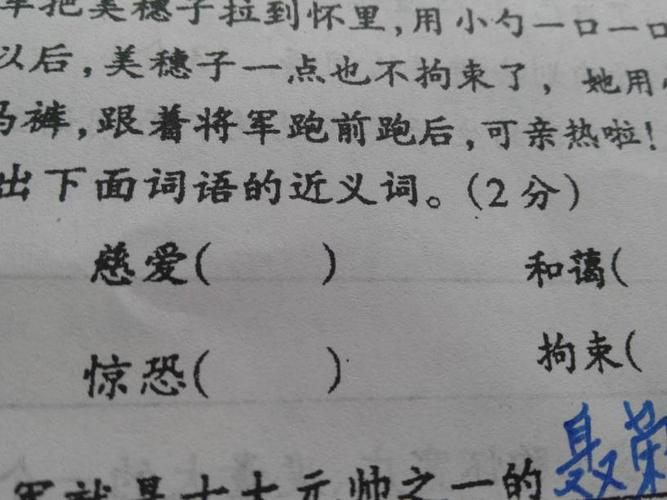 军把美穗子拉到怀里,用小勺一口一口
以后,美穗子一点也不拘束了,她用
马裤,跟着将军跑前跑后,可亲热啦!
出下面词语的近义词。(2分)
慈爱( ) 和蔼(
惊恐( ) 拘束(
军就是十大元帅之一的聂荣